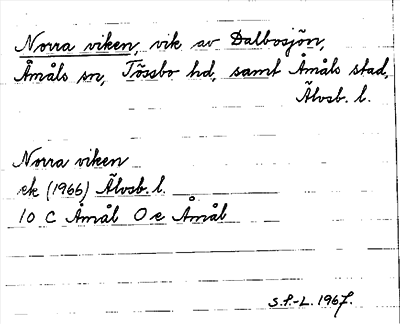 Norra viken, vik av Dalbosjön,
Åmåls sn, Tössbo hd, samt Åmåls stad,
Älvsb. l.
Norra viken
ek (1966) Älvsb. l.
10 C Åmål 0 e Åmål
S.F.-L. 1967.